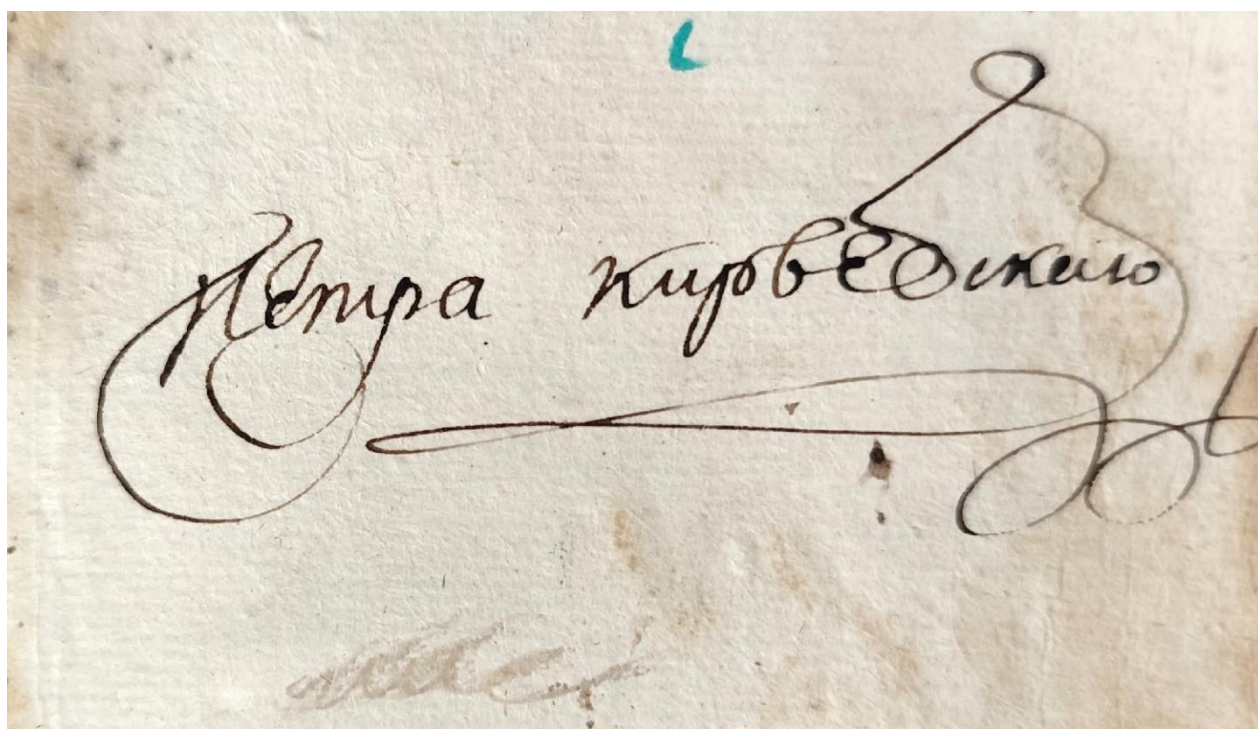 Петра кирѣевскаго